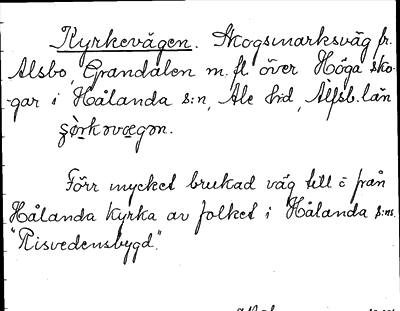 Kyrkevägen. Skogsmarksväg fr.
Alsbo, Grandalen m. fl över Höga sko-
gar i Hålanda s:n, Ale h:d, Älfsb. län
Förr mycket brukad väg till o från
Hålanda Kyrka av folket i Hålanda s:ns
"Risvedensbygd".